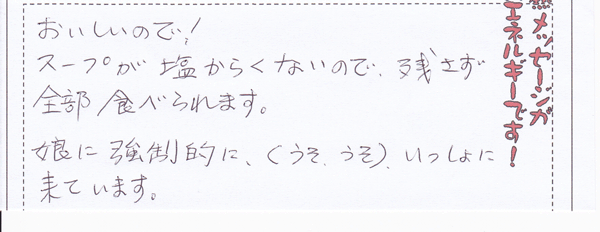 おいしいので!
スープが塩からくないので、残さず
全部食べられます。
娘に強制的に、(うそ、うそ)、いっしょに
来ています。
メッセージが
エネルギーです!